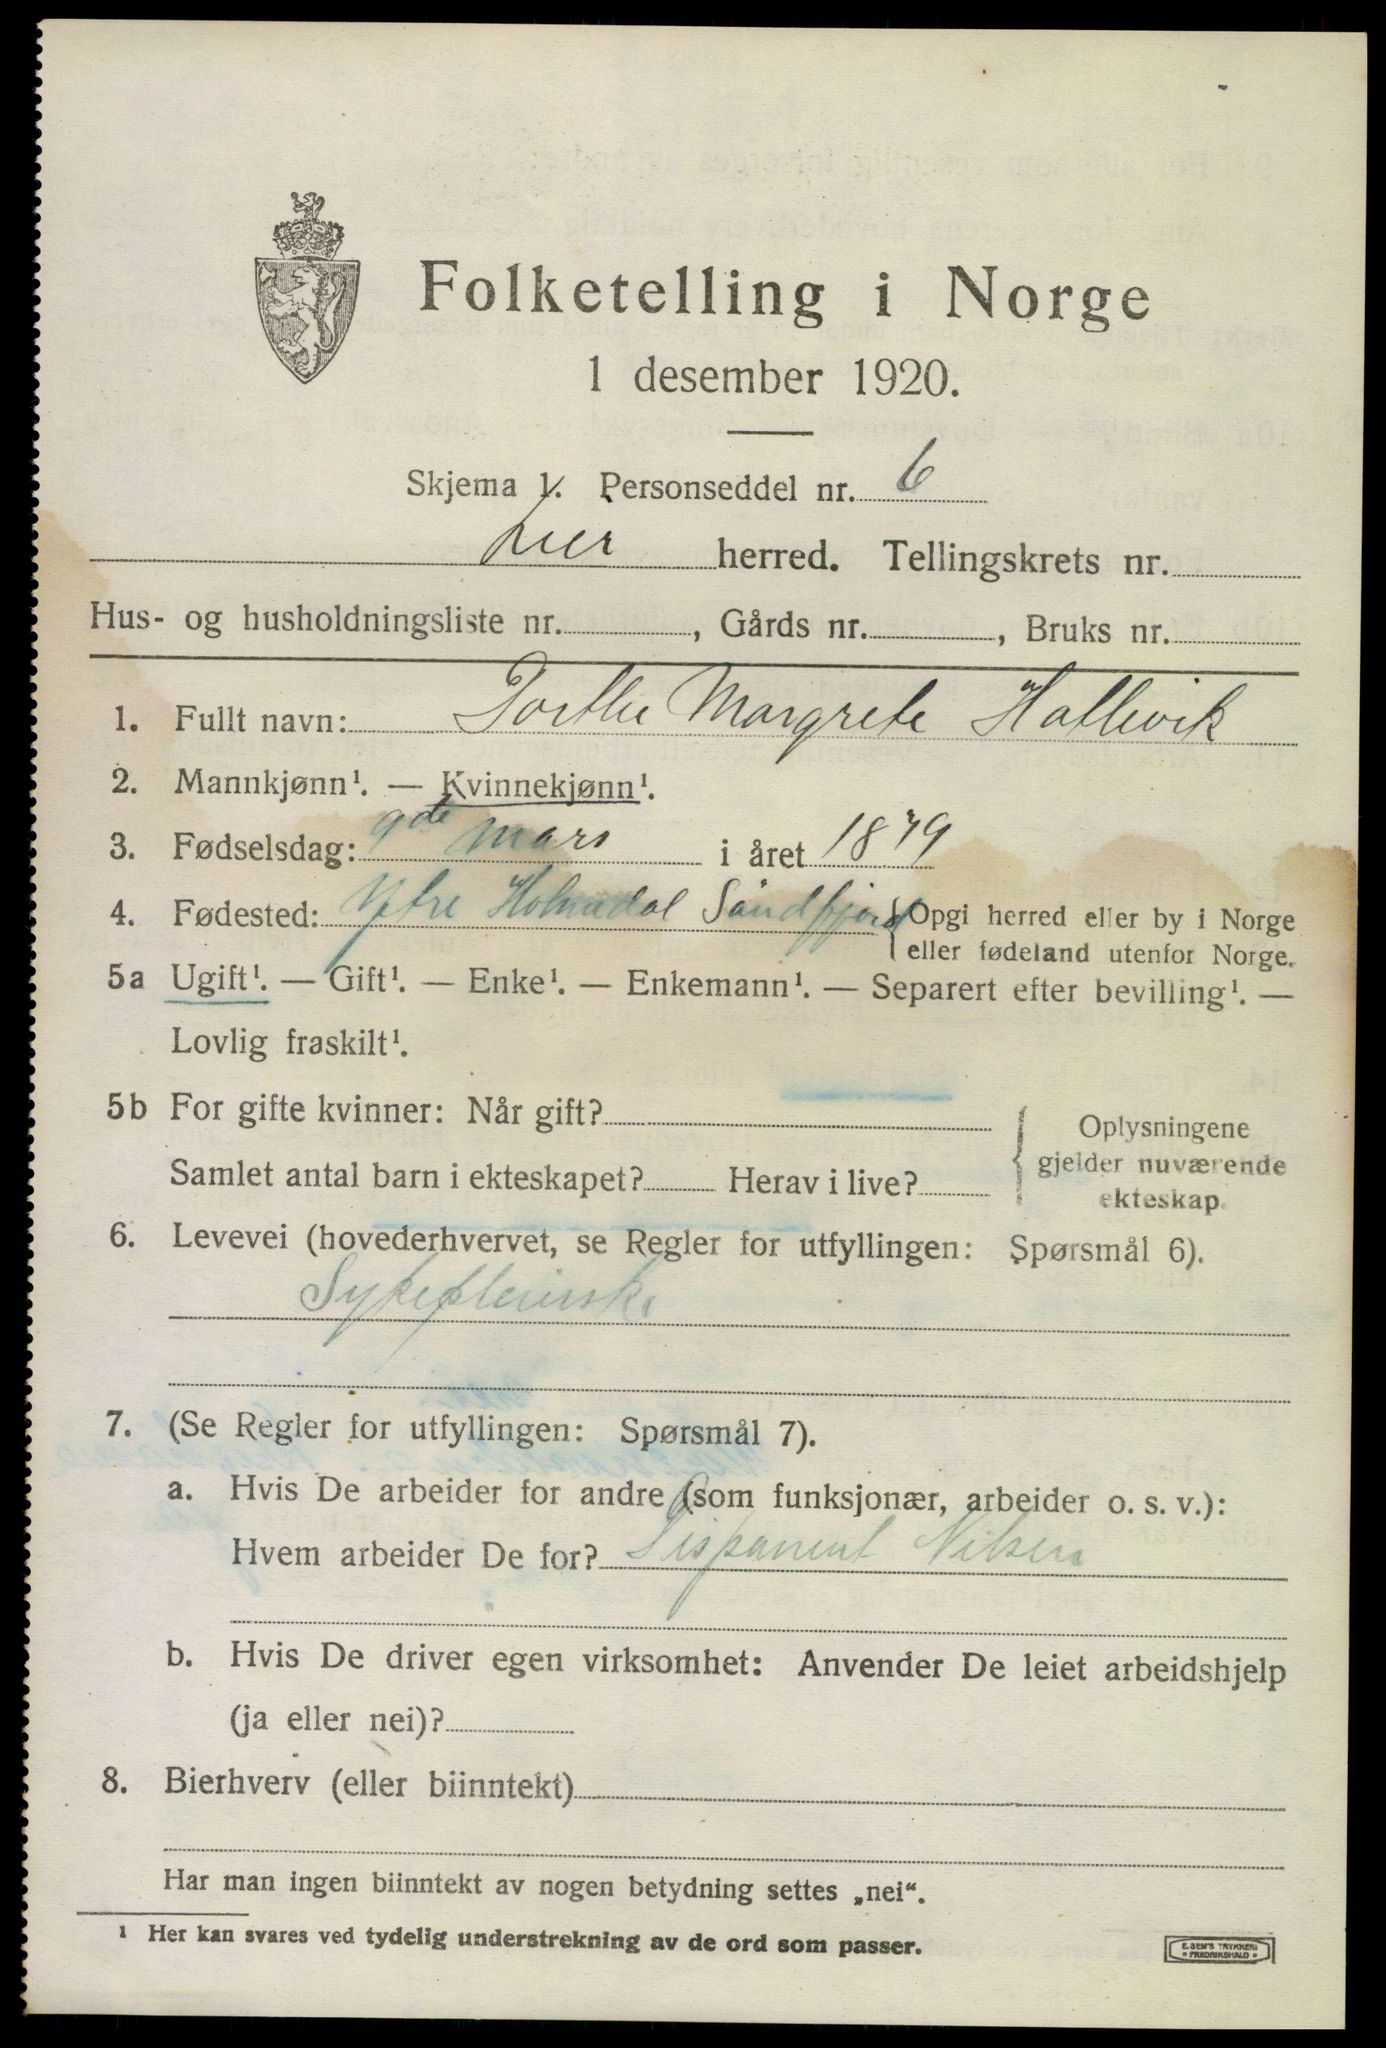 Folketelling i Norge
1 desember 1920.
Skjema 1. Personseddel nr. 6
Lier herred. Tellingskrets nr.
Hus- og husholdningsliste nr. , Gårds nr. , Bruks nr.
1. Fullt navn: Dorthe Margrete Hatlevik
2. Mannkjønn¹. — Kvinnekjønn¹.
3. Fødselsdag: 9de mars i året 1879
4. Fødested: Ytre Holmedal Søndfjord { Opgi herred eller by i Norge
eller fødeland utenfor Norge.
5a Ugift¹. — Gift¹. — Enke¹. — Enkemann¹. — Separert efter bevilling¹. —
Lovlig fraskilt¹.
5b For gifte kvinner: Når gift? { Oplysningene
gjelder nuværende
ekteskap.
Samlet antal barn i ekteskapet? Herav i live?
6. Levevei (hovederhvervet, se Regler for utfyllingen: Spørsmål 6).
Sykepleierske
7. (Se Regler for utfyllingen: Spørsmål 7).
a. Hvis De arbeider for andre (som funksjonær, arbeider o. s. v.):
Hvem arbeider De for? Disponent Nilsen
b. Hvis De driver egen virksomhet: Anvender De leiet arbeidshjelp
(ja eller nei)?
8. Bierhverv (eller biinntekt)
Har man ingen biinntekt av nogen betydning settes „nei“.
¹ Her kan svares ved tydelig understrekning av de ord som passer.
E. SEM'S TRYKKERI
• FREDRIKSHALD •